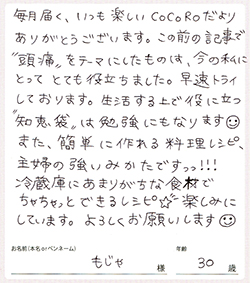 毎月届く、いつも楽しいCoCoRoだより
ありがとうございます。この前の記事で
"頭痛"をテーマにしたものは、今の私に
とって とても役立ちました。早速トライ
しております。生活する上で役に立つ
"知恵袋"は勉強にもなります☺
また、簡単に作れる料理レシピ、
主婦の強いみかたですっ!!!
冷蔵庫にあまりがちな食材で
ちゃちゃっとできるレシピ☆楽しみに
しています。よろしくお願いします☺
お名前(本名orペンネーム) 年齢
もじゃ 様 30 歳